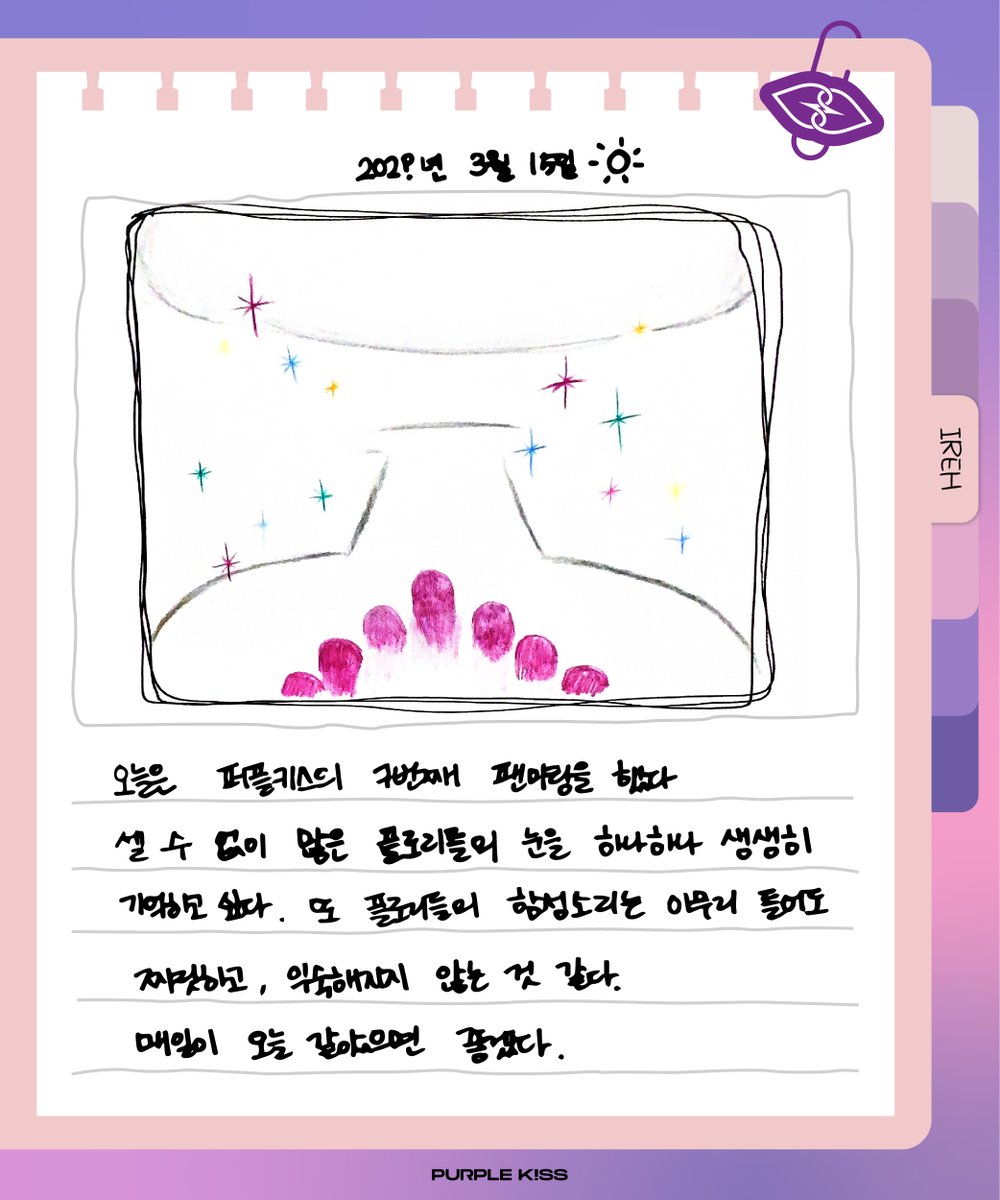 202?년 3월 15일
IREH
오늘은 퍼플키스의 7번째 팬미팅을 했다
셀 수 없이 많은 플로리들의 눈을 하나하나 생생히
기억하고 싶다. 또 플로리들의 함성소리는 아무리 들어도
짜릿하고, 익숙해지지 않는 것 같다.
매일이 오늘 같았으면 좋겠다.
PURPLE K!SS